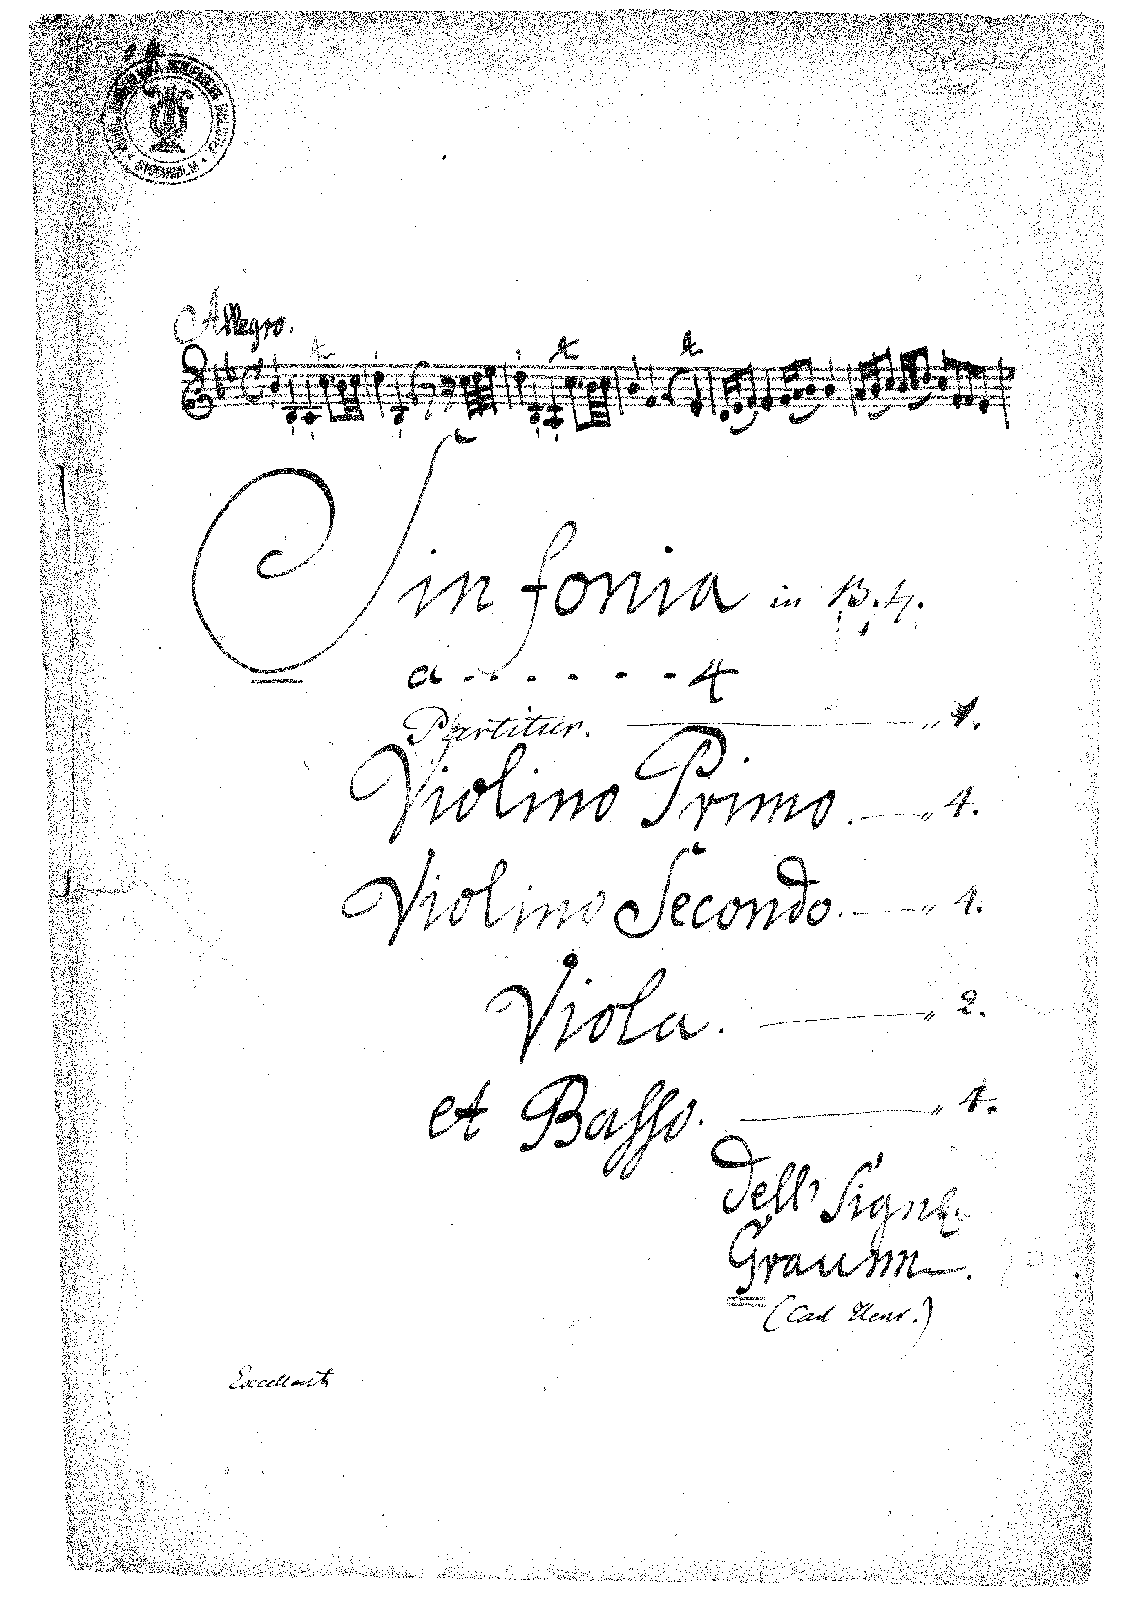 STOCKHOLM
Allegro.
Sinfonia in B.
a . . . . . . 4
Partitur. ——— " 1.
Violino Primo. — " 1.
Violino Secondo. — " 1.
Viola. ——— " 2.
et Basso. ——— " 1.
dell' Sign:
Graun.
(Carl Henr.)
Excellent